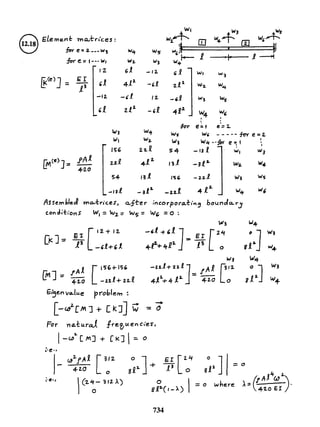 12.18
Element matrices:
W₁ W₃ W₅
W₂ W₄ W₆
1 2
l l
for e = 2 ---- W₃ W₄ W₅ W₆
for e = 1 ---- W₁ W₂ W₃ W₄
[K^(e)] = EI/l³ [ 12 6l -12 6l ] W₁ W₃
6l 4l² -6l 2l² W₂ W₄
-12 -6l 12 -6l W₃ W₅
6l 2l² -6l 4l² W₄ W₆
for e=1 e=2
W₃ W₄ W₅ W₆ ----- for e=2
W₁ W₂ W₃ W₄ -- for e=1
[M^(e)] = ρAl/420 [ 156 22l 54 -13l ] W₁ W₃
22l 4l² 13l -3l² W₂ W₄
54 13l 156 -22l W₃ W₅
-13l -3l² -22l 4l² W₄ W₆
Assembled matrices, after incorporating boundary
conditions W₁ = W₂ = W₅ = W₆ = 0 :
W₃ W₄
[K] = EI/l³ [ 12+12 -6l+6l ; -6l+6l 4l²+4l² ] = EI/l³ [ 24 0 ; 0 8l² ] W₃ W₄
W₃ W₄
[M] = ρAl/420 [ 156+156 -22l+22l ; -22l+22l 4l²+4l² ] = ρAl/420 [ 312 0 ; 0 8l² ] W₃ W₄
Eigenvalue problem :
[-ω²[M] + [K]] W⃗ = 0⃗
For natural frequencies,
|-ω²[M] + [K]| = 0
i.e.,
| -ω²ρAl/420 [ 312 0 ; 0 8l² ] + EI/l³ [ 24 0 ; 0 8l² ] | = 0
i.e., | (24-312λ) 0 ; 0 8l²(1-λ) | = 0 where λ = (ρAl⁴ω²/420EI).
734